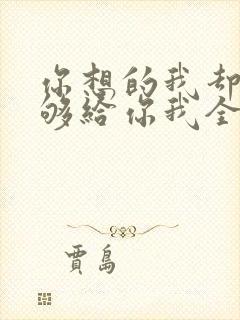 你想的我却
够给你我全
賈島